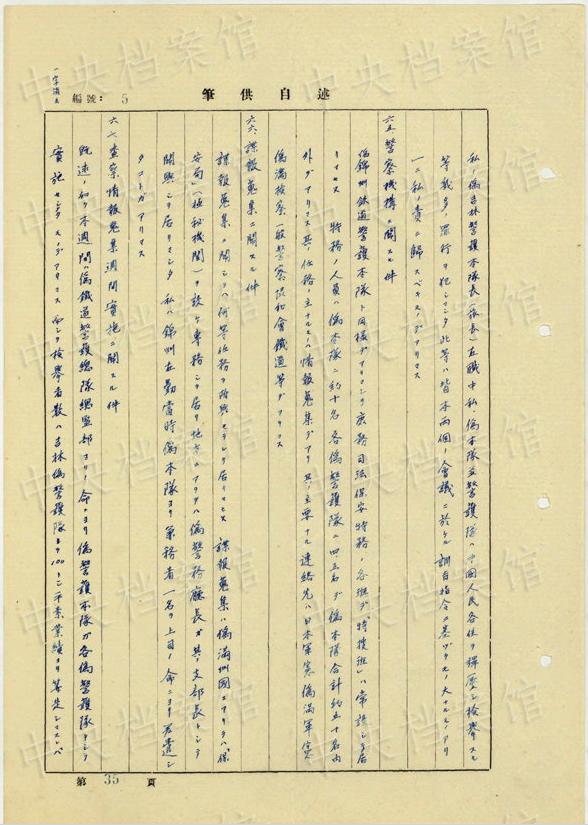 述自供筆
編號： 5
一字消ス
私ハ偽吉林警護本隊長(旅長)在職中私ハ偽本隊並警護隊ハ中國人民各位ヲ弾壓シ検擧スル
等幾多ノ罪行ヲ犯シマシタ此等ハ皆本両個ノ會議ニ於ケル訓自指令ニ基ヅクモノ大ナルモノアリ
一ニ私ノ責ニ歸スベキモノデアリマス
六五、警察機構ニ関スル件
偽錦州鉄道警護本隊ト同様デアリマシタ庶務司法保安特務ノ各班デ「特捜班」ハ常設シテ居
リマセヌ 特務人員ハ偽本隊ニ約十名各偽警護隊ニ四、五名デ偽本隊合計約五十名内
外デアリマス其ノ任務ノ主ナルモノハ情報蒐集デアリ其ノ主要ナル連絡先ハ日本軍憲偽満軍憲
偽満検察一般警察協和會鐵道等デアリマス
六六、諜報蒐集ニ関スル件
諜報蒐集ニ関シテハ何等任務ヲ附與セラレテ居リマセヌ 諜報蒐集ハ偽満洲國ニアリテハ「保
安局」(極秘機関)ヲ設ケ専務シテ居リ地方ニアリテハ偽警務廳長ガ其ノ支部長トシテ
関與シテ居リマシタ 私ハ錦州在勤當時偽本隊ヨリ兼務者一名ヲ上司ノ命ニヨリ差遣シ
タコトガアリマス
六七、査察情報蒐集週間實施ニ関スル件
既述ノ如ク本週間ハ偽鐵道警護總隊總監部ヨリノ命ニヨリ偽警護本隊ガ各偽警護隊ヲシテ
實施セシメタモノデアリマス 而シテ検擧者数ハ吉林偽警護隊ヨリ100トシ平素業績ヨリ算定シマスレバ
第 35 頁